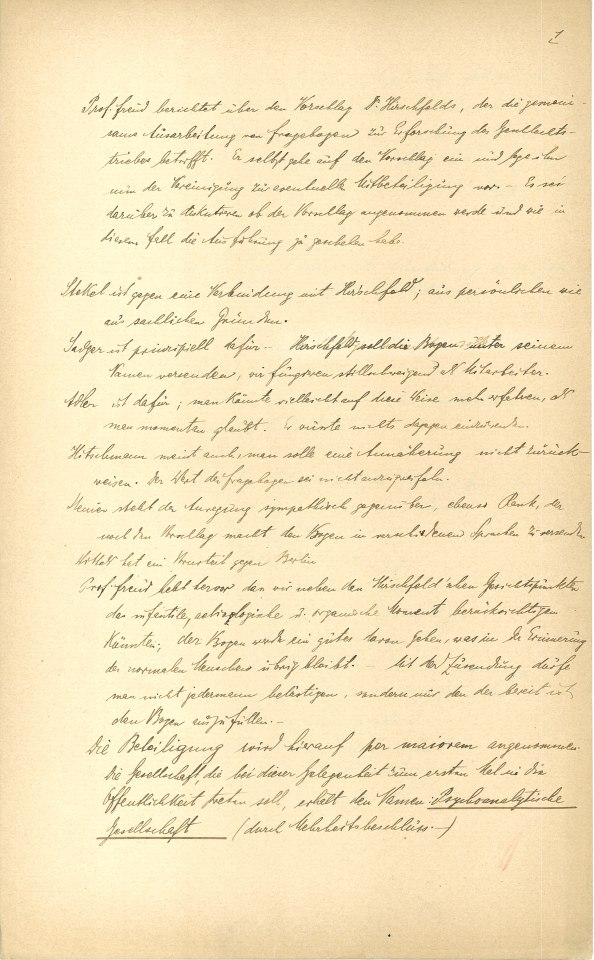 1
Prof. Freud berichtet über den Vorschlag Dr Hirschfelds, der die gemein-
same Ausarbeitung von Fragebogen zur Erforschung des Geschlechts-
triebes betrifft. Er selbst gehe auf den Vorschlag ein und lege ihn
nun der Vereinigung zu eventuelle Mitbeteiligung vor. – Es sei
darüber zu diskutieren ob der Vorschlag angenommen werde und wie in
diesem Fall die Ausführung zu geschehen habe.
Stekel ist gegen eine Verbindung mit Hirschfeld; aus persönlichen wie
aus sachlichen Gründen.
Sadger ist prinzipiell dafür – Hirschfeld soll die Bogen unter seinem
Namen versenden, wir fungieren stillschweigend als Mitarbeiter.
Adler ist dafür; man könnte vielleicht auf diese Weise mehr erfahren, als
man momentan glaubt. Er wüsste nichts dagegen einzuwenden.
Hitschmann meint auch, man solle eine Annäherung nicht zurück-
weisen. Der Wert der Fragebogen sei nicht anzuzweifeln.
steht der Anregung sympathisch gegenüber, ebenso Rank, der
noch den Vorschlag macht den Bogen in verschiedenen Sprachen zu versenden
hat ein Vorurteil gegen Berlin
Prof. Freud hebt hervor dass wir neben den Hirschfeld'schen Gesichtspunkten
das infantile, aetiologische u. organische Moment berücksichtigen
könnten; der Bogen werde ein gutes davon geben, was in der Erinnerung
des normalen Menschen übrig bleibt. – Mit der Zusendung dürfe
man nicht jedermann belästigen, sondern nur den der bereit ist
den Bogen auszufüllen. –
Die Beteiligung wird hierauf per maiorem angenommen.
Die Gesellschaft, die bei dieser Gelegenheit zum ersten Mal in die
Öffentlichkeit treten soll, erhält den Namen: Psychoanalytische
Gesellschaft (durch Mehrheitsbeschluss. –)